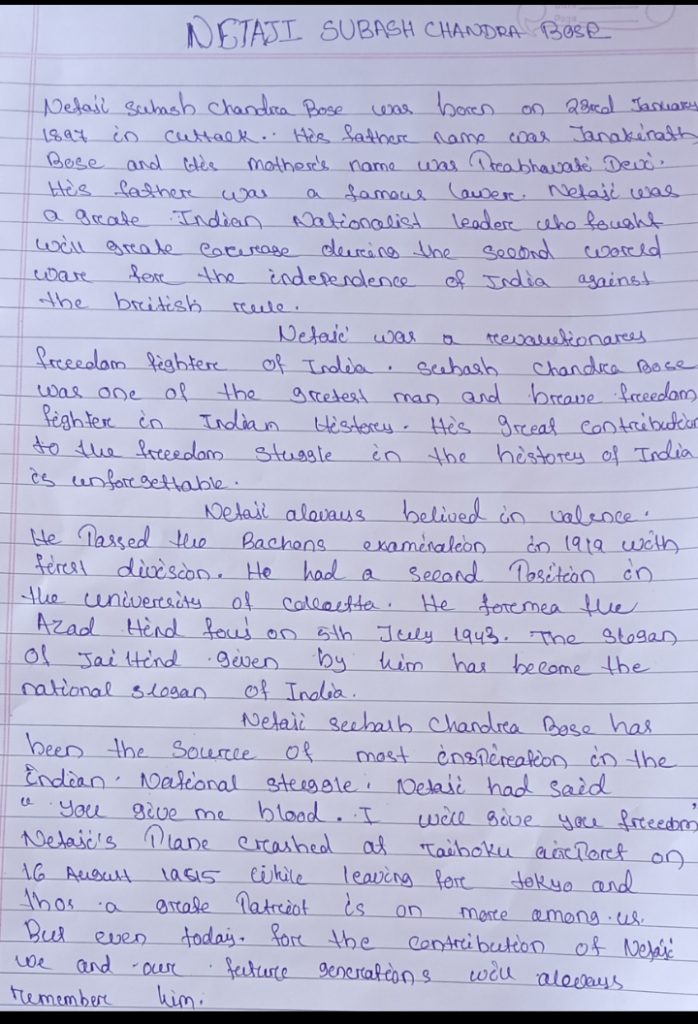 NETAJI SUBASH CHANDRA BOSE
Netaji Subash Chandra Bose was born on 23rd January
1897 in cuttack. His father name was Janakinath
Bose and His mother's name was Prabhavati Devi.
His father was a famous lawer. Netaji was
a greate Indian Nationalist leader who fought
will greate courage during the second world
ware for the independence of India against
the british rule.
Netaji was a
freedom fighter of India. Subash Chandra Bose
was one of the gretest man and brave freedom
fighter in Indian History. His great contribution
to the freedom stuggle in the history of India
is unforgettable.
Netaji always belived in valence.
He Passed the Bachans examination in 1919 with
first division. He had a second Position in
the university of calcutta. He formea the
Azad Hind fouj on 5th July 1943. The slogan
of Jai Hind given by him has become the
national slogan of India.
Netaji Subash Chandra Bose has
been the source of most inspiration in the
Indian National struggle. Netaji had said
"You give me blood. I will give you freedom"
Netaji's Plane crashed at Taihoku airport on
16 August while leaving for tokyo and
thos a greate Patriot is on more among us.
But even today. for the contribution of Netaji
we and our future generations will always
remember him.